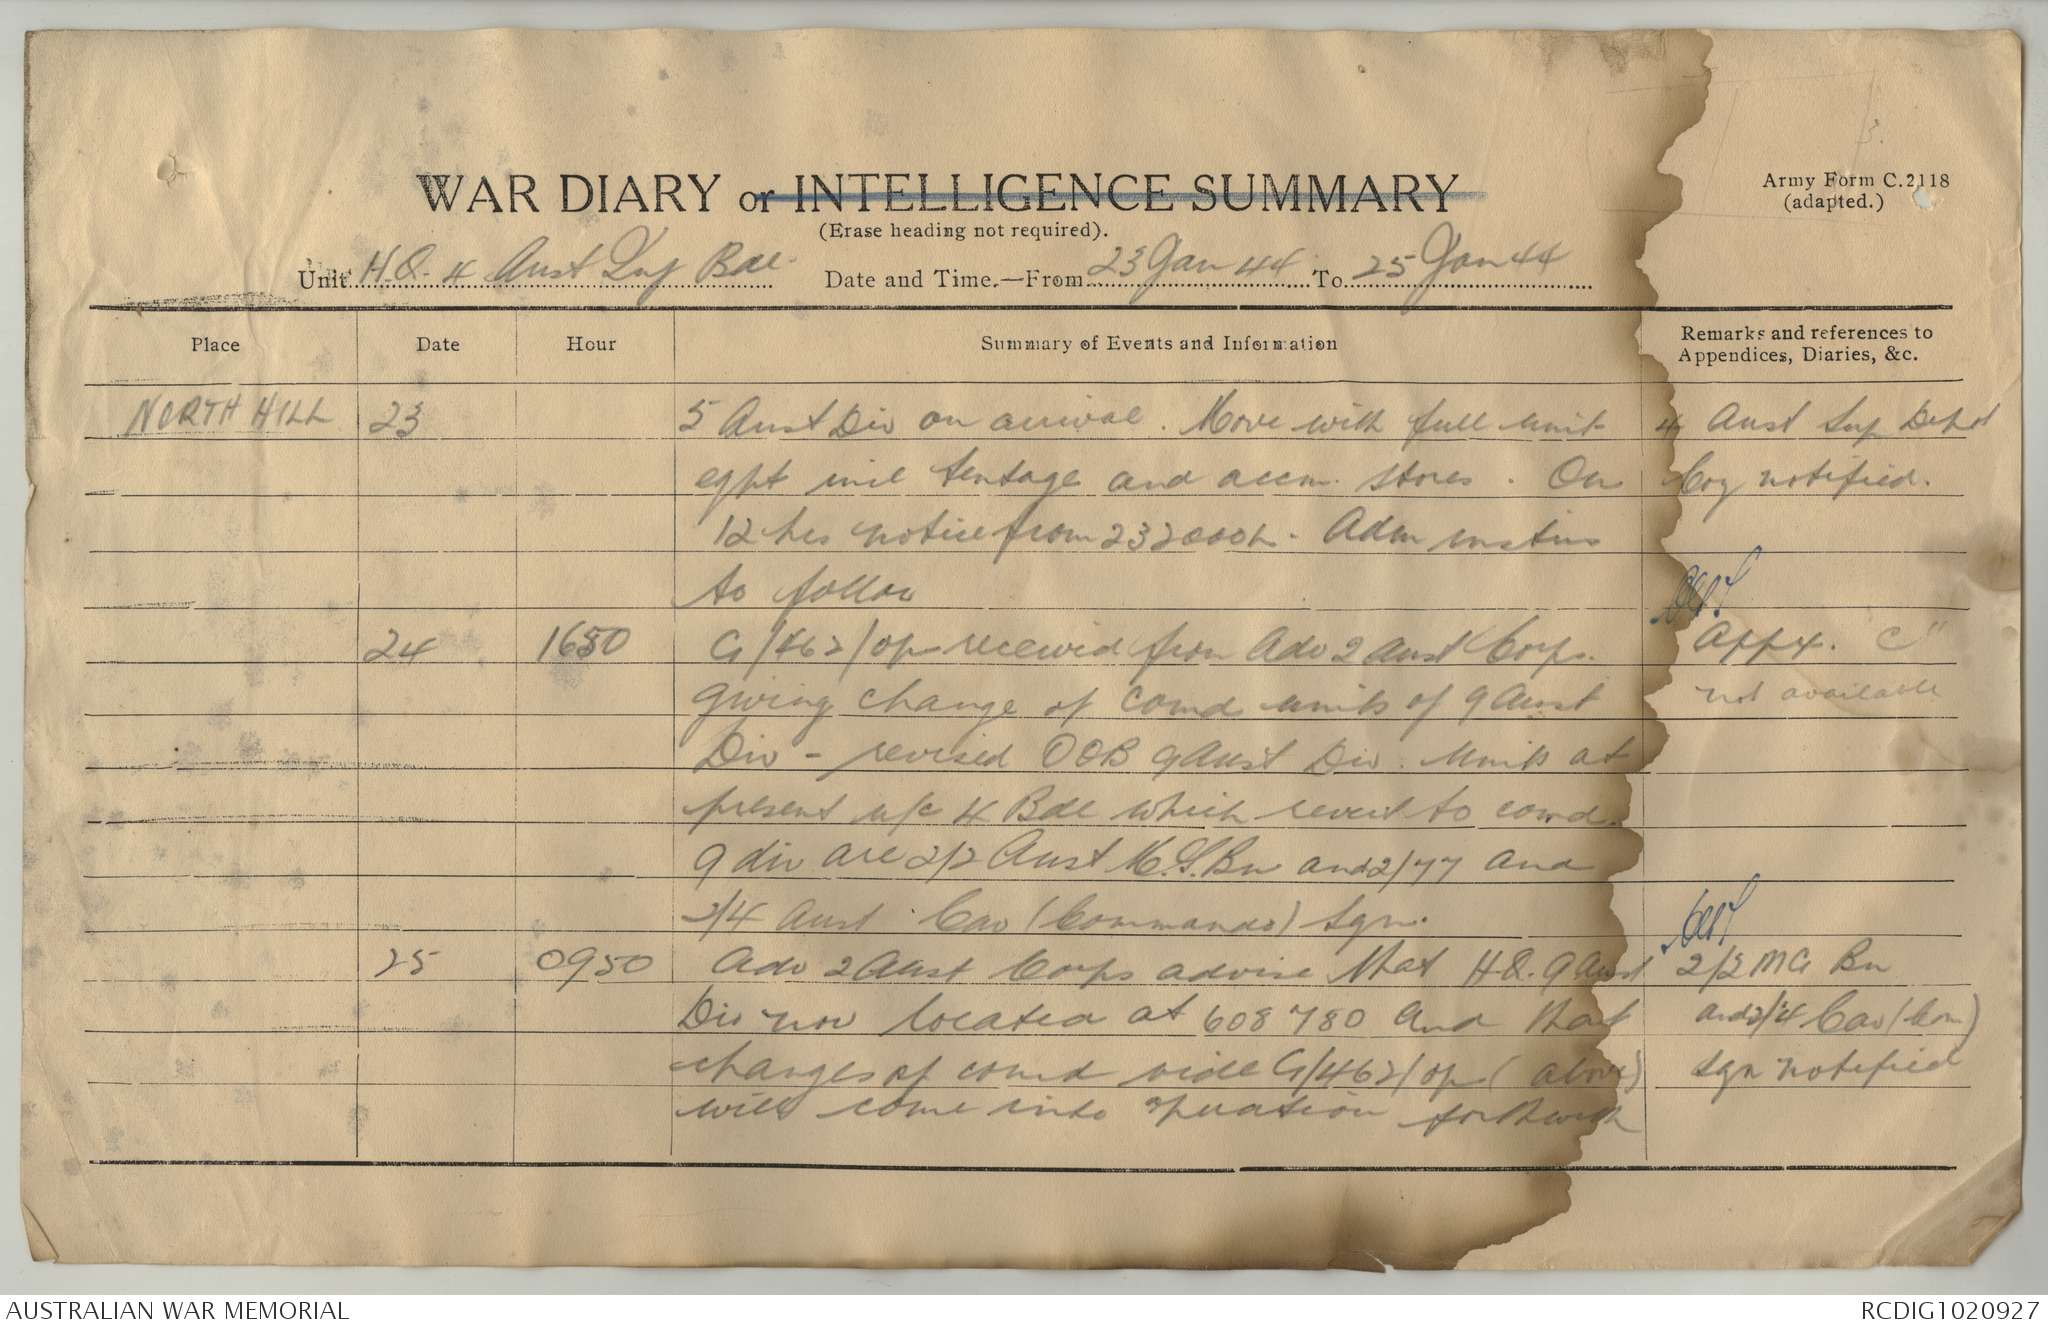 3.
WAR DIARY or INTELLIGENCE SUMMARY
(Erase heading not required).
Army Form C.2118
(adapted.)
Unit H.Q. 4 Aust Inf Bde. Date and Time.—From 23 Jan 44. To 25 Jan 44
Place Date Hour Summary of Events and Information Remarks and references to
Appendices, Diaries, &c.
NORTH HILL 23 5 Aust Div on arrival. Move with full unit 4 Aust Sup Depot
eqpt incl tentage and accm. stores. On Coy notified.
12 hrs notice from 232000h. Adm instns
to follow
24 1630 G/462/ops received from Adv 2 Aust Corps. Appx. "C"
giving change of comd units of 9 Aust not available
Div - revised OOB 9 Aust Div. Units at
present u/c 4 Bde which revert to comd.
9 div are 2/2 Aust M.G. Bn and 2/77 and
2/4 Aust Cav (Commando) Sqn.
25 0950 Adv 2 Aust Corps advise that H.Q. 9 Aust 2/2 MG Bn
Div now located at 608780 and that and 2/4 Cav (Com)
changes of comd vide G/462/ops (above) Sqn notified
will come into operation forthwith
AUSTRALIAN WAR MEMORIAL RCDIG1020927